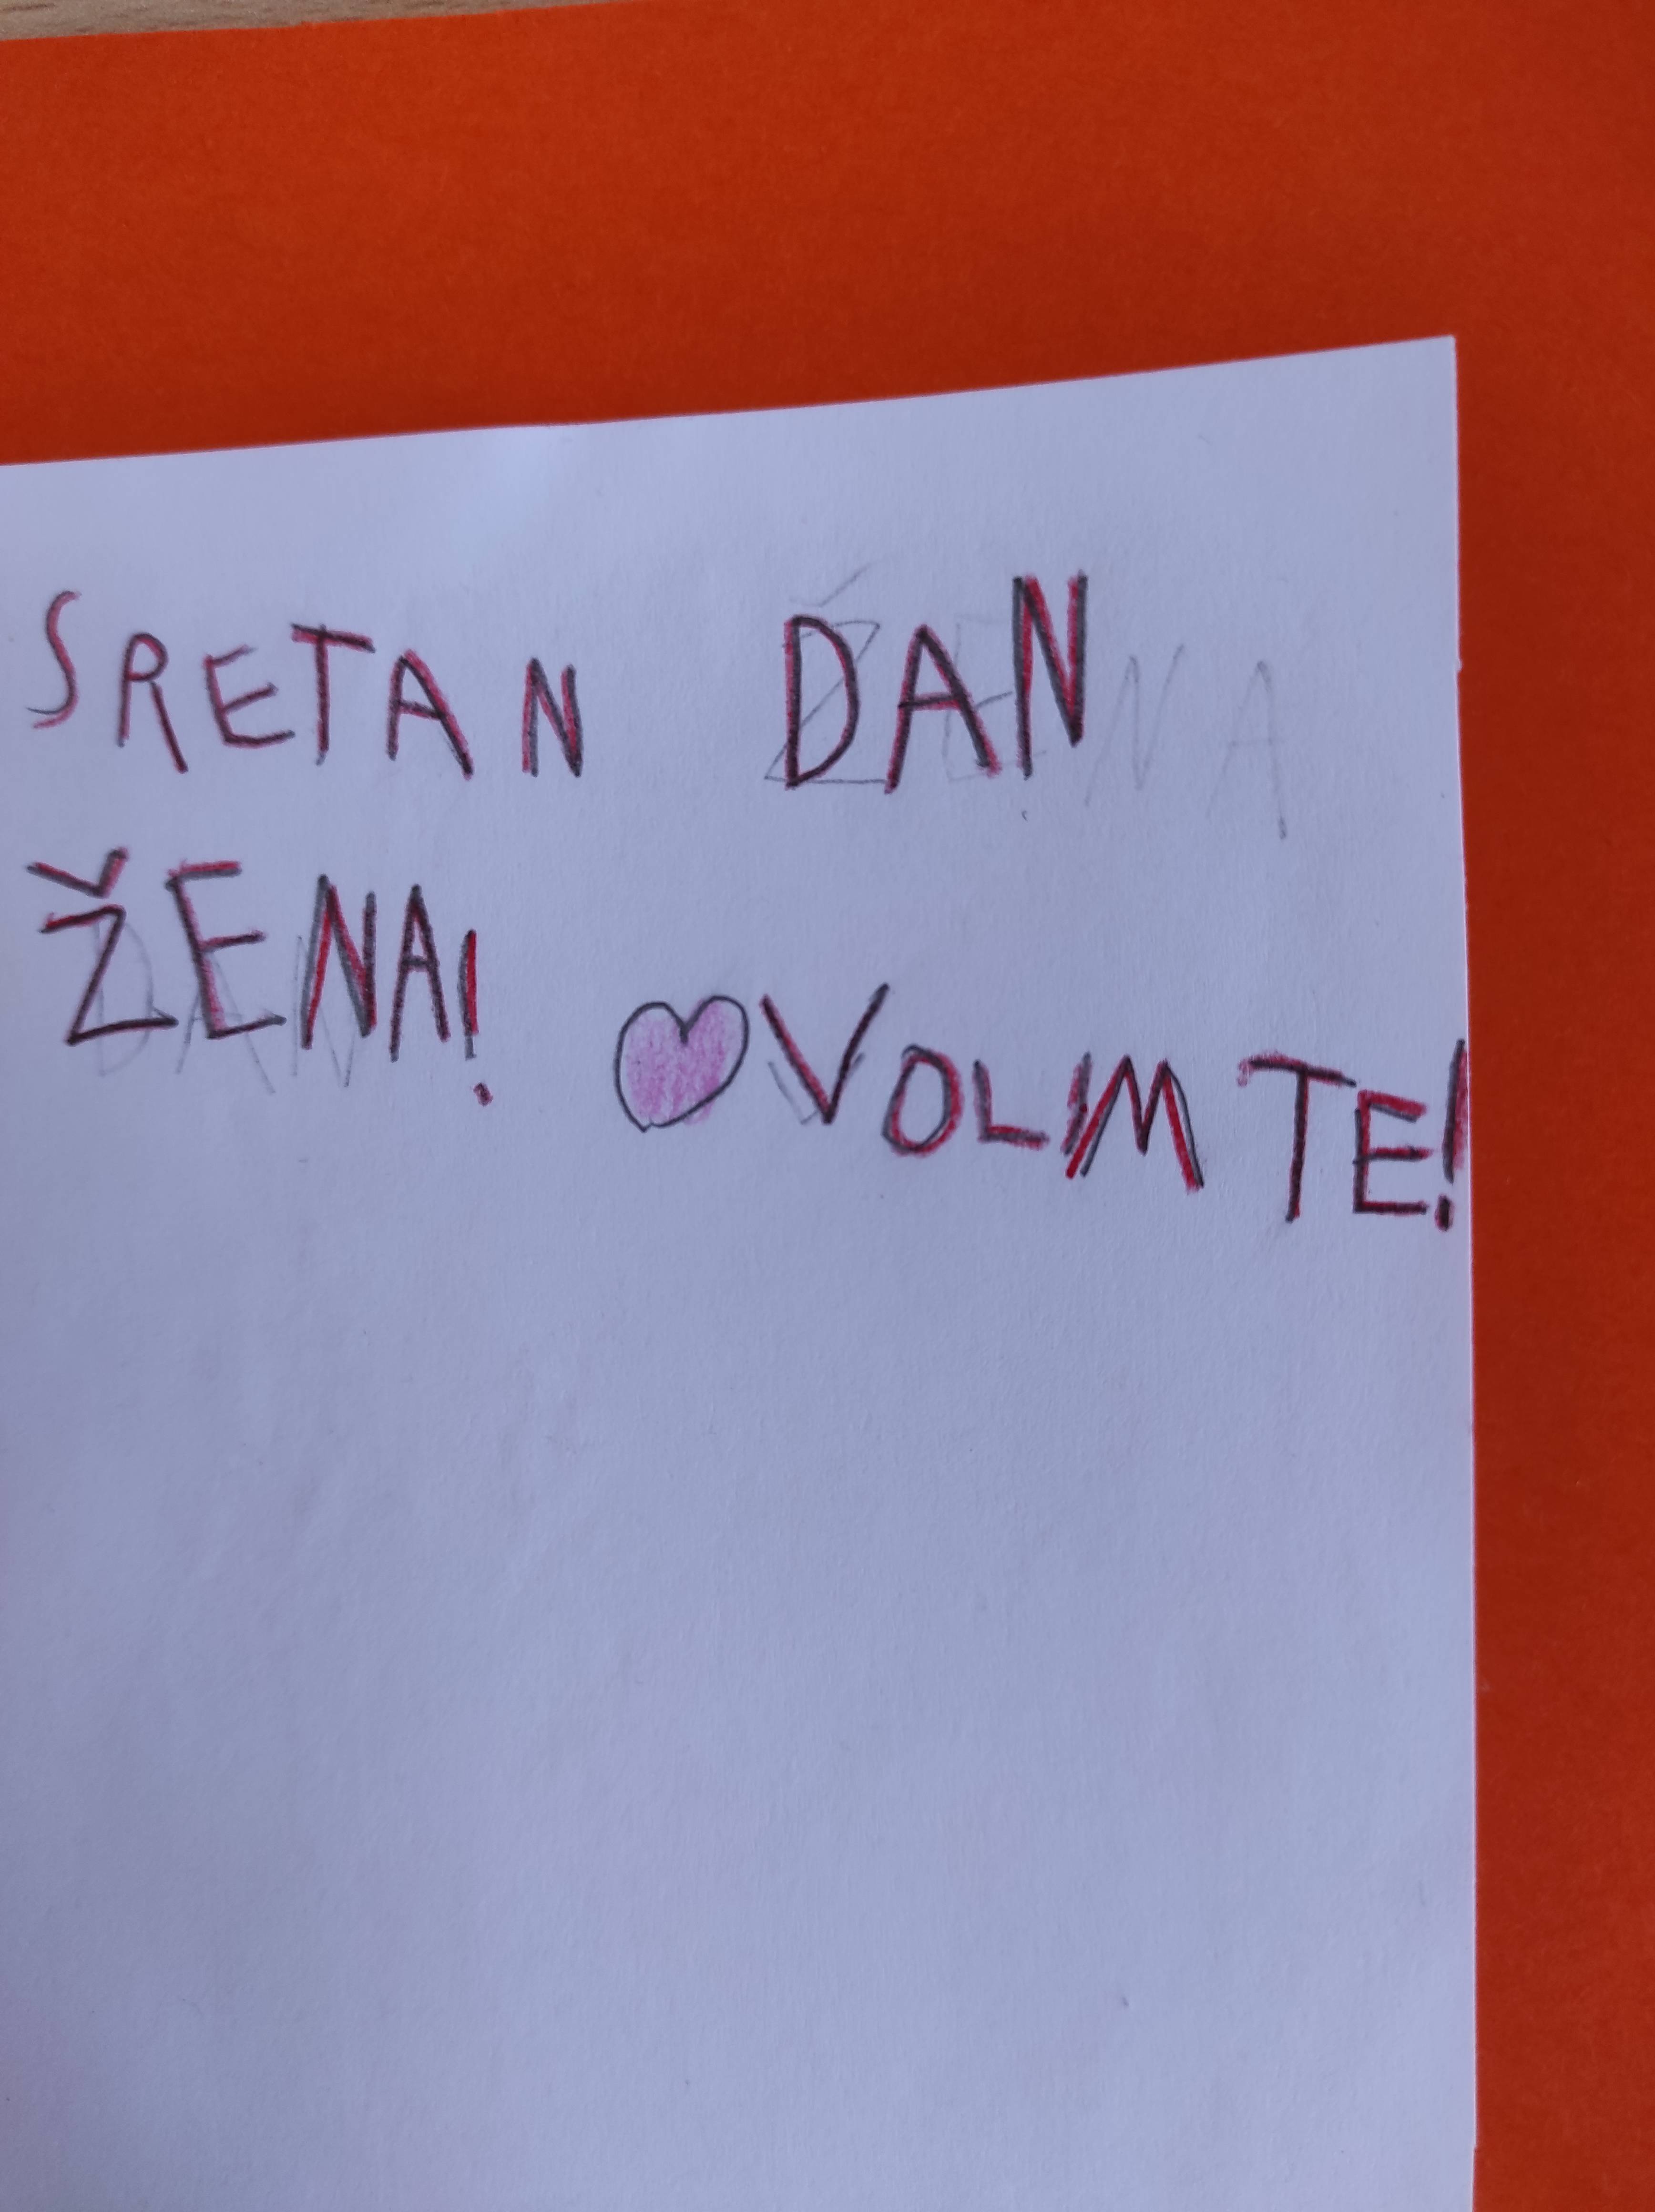 SRETAN DAN
ŽENA!
VOLIM TE!